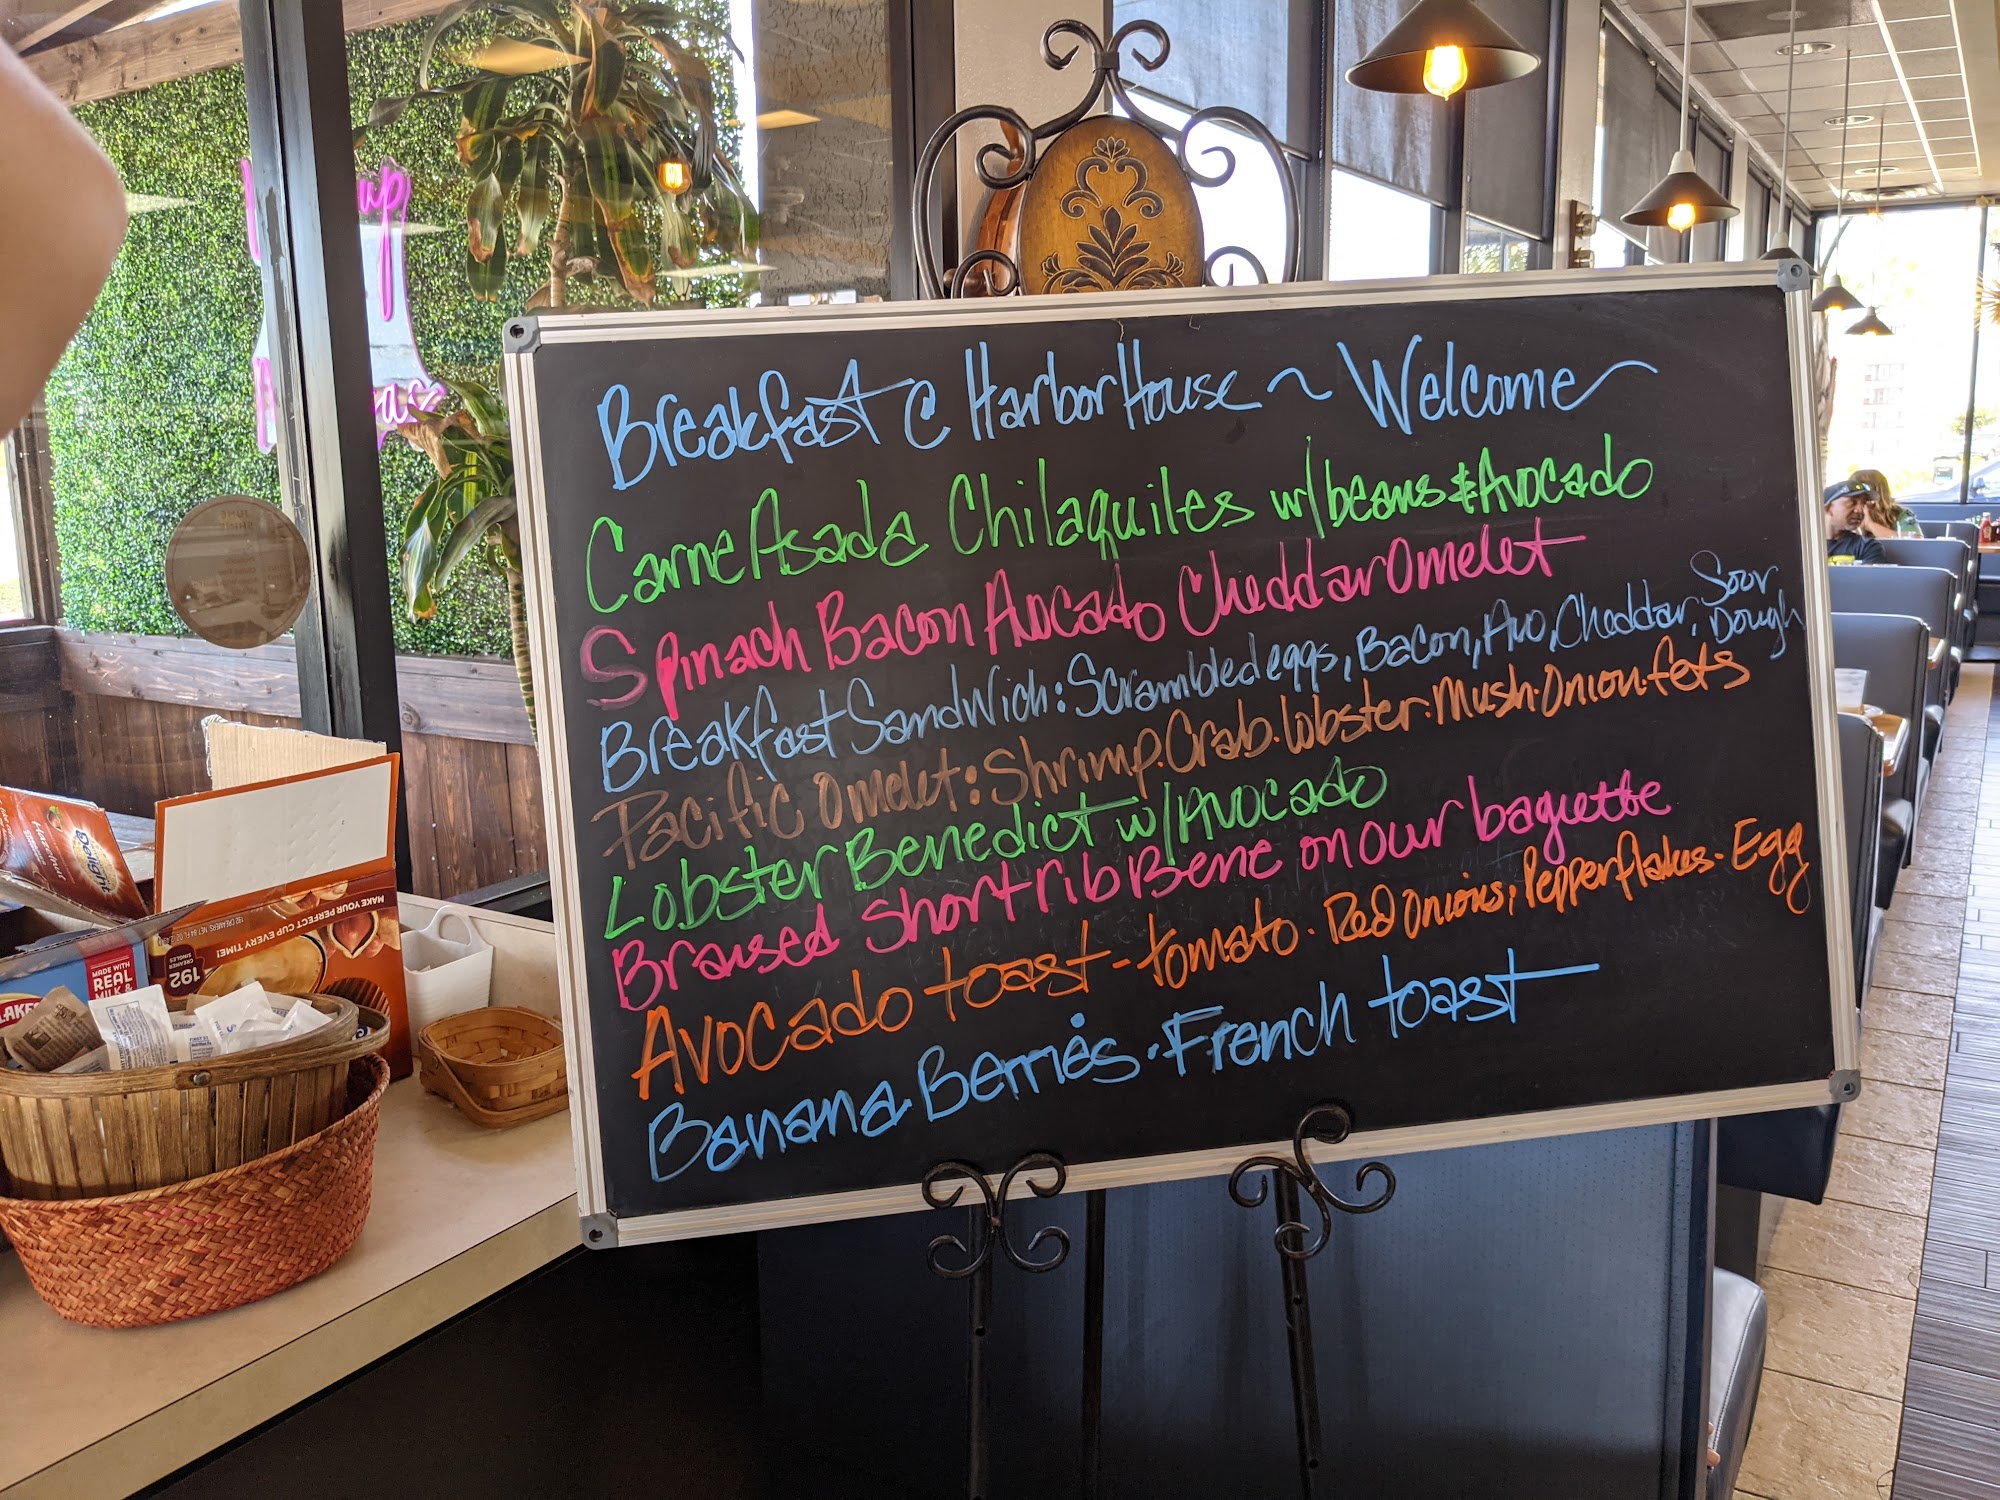 Breakfast @ Harbor House ~ Welcome
Carne Asada Chilaquiles w/beans & Avocado
Spinach Bacon Avocado Cheddar Omelet
Breakfast Sandwich: Scrambled eggs, Bacon, Avo, Cheddar, Sour Dough
Pacific Omelet: Shrimp. Crab. lobster. Mush. Onion. feta
Lobster Benedict w/ Avocado
Braised Short rib Bene on our baguette
Avocado toast - tomato. Red onions, Pepper flakes. Egg
Banana Berries. French toast
up
Hazelnut
delight
MAKE YOUR PERFECT
CUP EVERY TIME!
192
CREAMER
SINGLES
MADE WITH
REAL
MILK &
JUNE